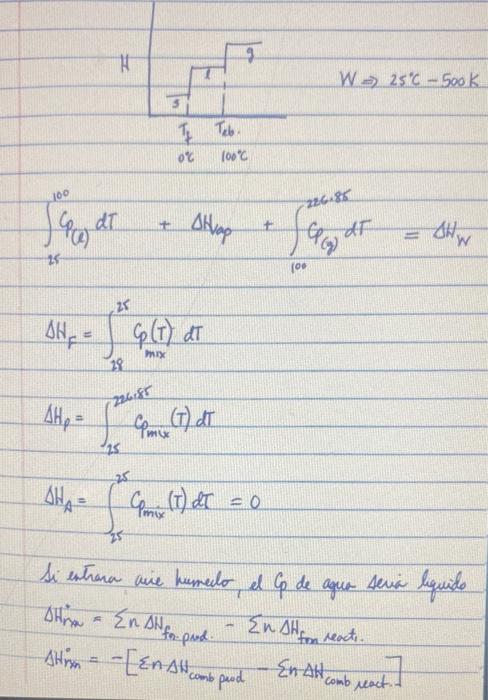 H
s
l
g
T_f T_eb.
0°C 100°C
W ⇒ 25°C – 500K
∫_25^100 Cp_(l) dT + ΔH_vap + ∫_100^226.85 Cp_(g) dT = ΔH_W
ΔH_F = ∫_28^25 Cp_mix (T) dT
ΔH_P = ∫_25^226.85 Cp_mix (T) dT
ΔH_A = ∫_25^25 Cp_mix (T) dT = 0
Si entrara aire humedo, el Cp de agua seria liquido
ΔH°rxn = Σn ΔH_fn. prod. – Σn ΔH_fon reacti.
ΔH°rxn = –[Σn ΔH_comb prod – Σn ΔH_comb react.]